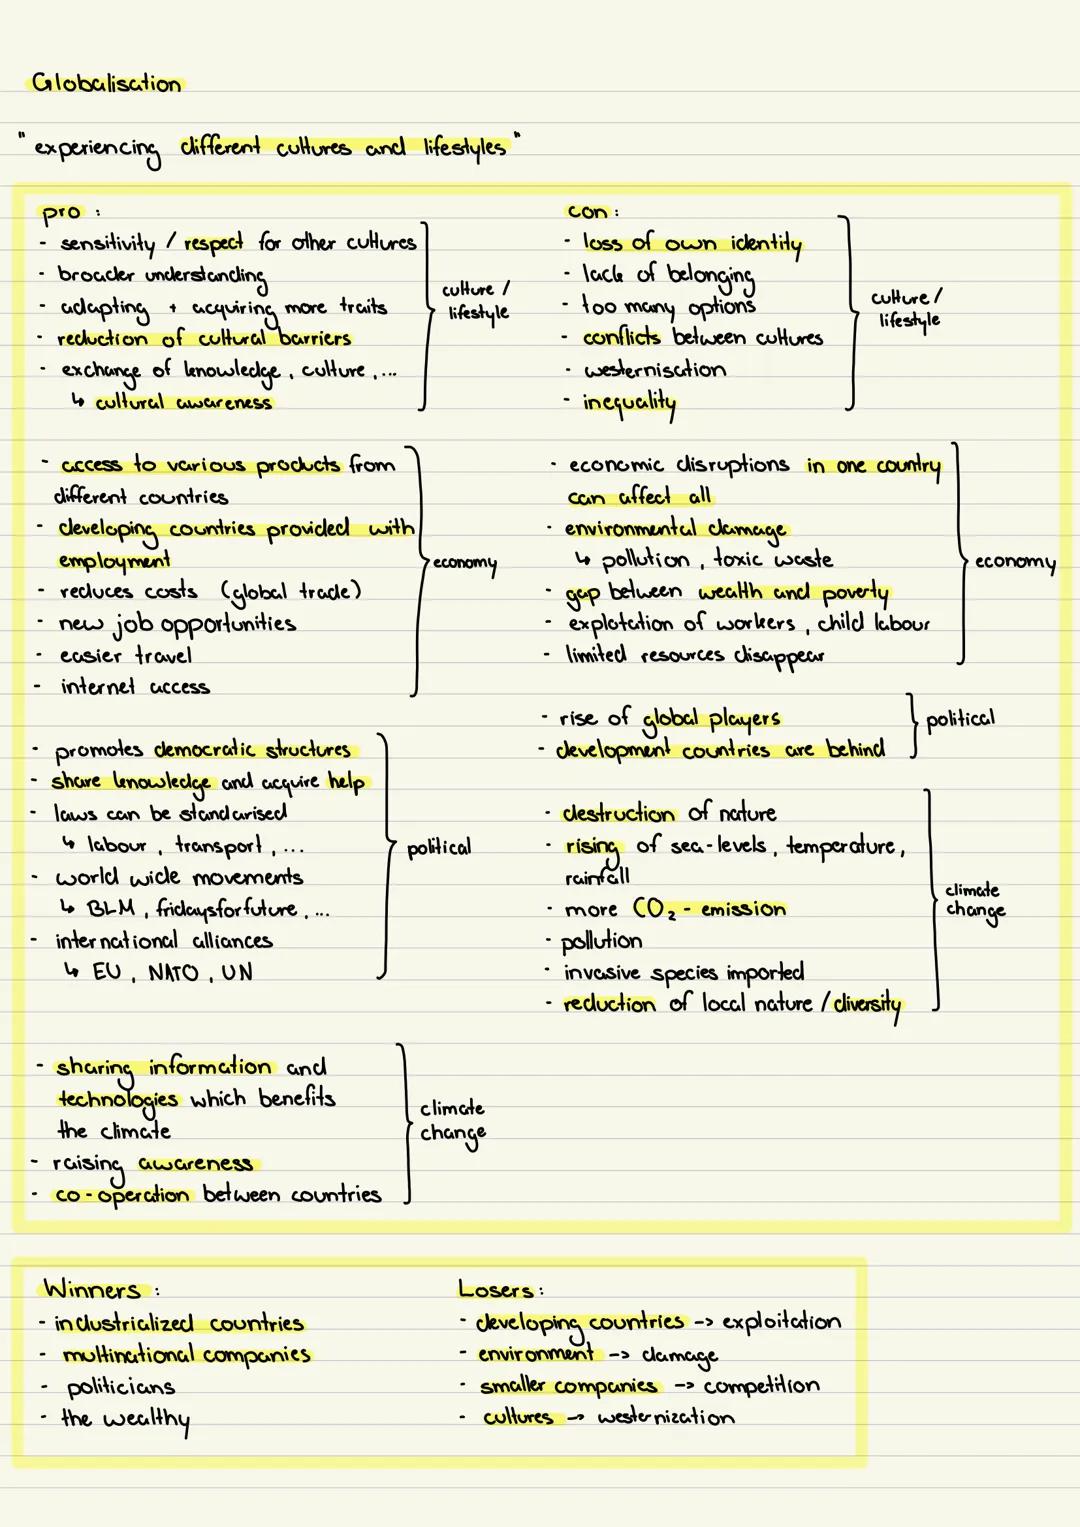 Globalisation
"experiencing different cultures and lifestyles"
pro :
- sensitivity / respect for other cultures
- broader understanding
- adapting + acquiring more traits
- reduction of cultural barriers
- exchange of knowledge, culture, ...
↳ cultural awareness
culture /
lifestyle
con :
- loss of own identity
- lack of belonging
- too many options
- conflicts between cultures
- westernisation
- inequality
culture /
lifestyle
- access to various products from
different countries
- developing countries provided with
employment
- reduces costs (global trade)
- new job opportunities
- easier travel
- internet access
economy
- economic disruptions in one country
can affect all
- environmental damage
↳ pollution, toxic waste
- gap between wealth and poverty
- explotation of workers, child labour
- limited resources disappear
economy
- rise of global players
- development countries are behind
political
- promotes democratic structures
- share knowledge and acquire help
- laws can be standarised
↳ labour, transport, ...
- world wide movements
↳ BLM, fridaysforfuture, ...
- international alliances
↳ EU, NATO, UN
political
- destruction of nature
- rising of sea-levels, temperature,
rainfall
- more CO₂ - emission
- pollution
- invasive species imported
- reduction of local nature / diversity
climate
change
- sharing information and
technologies which benefits
the climate
- raising awareness
- co-operation between countries
climate
change
Winners :
- industrialized countries
- multinational companies
- politicians
- the wealthy
Losers :
- developing countries -> exploitation
- environment -> damage
- smaller companies -> competition
- cultures -> westernization